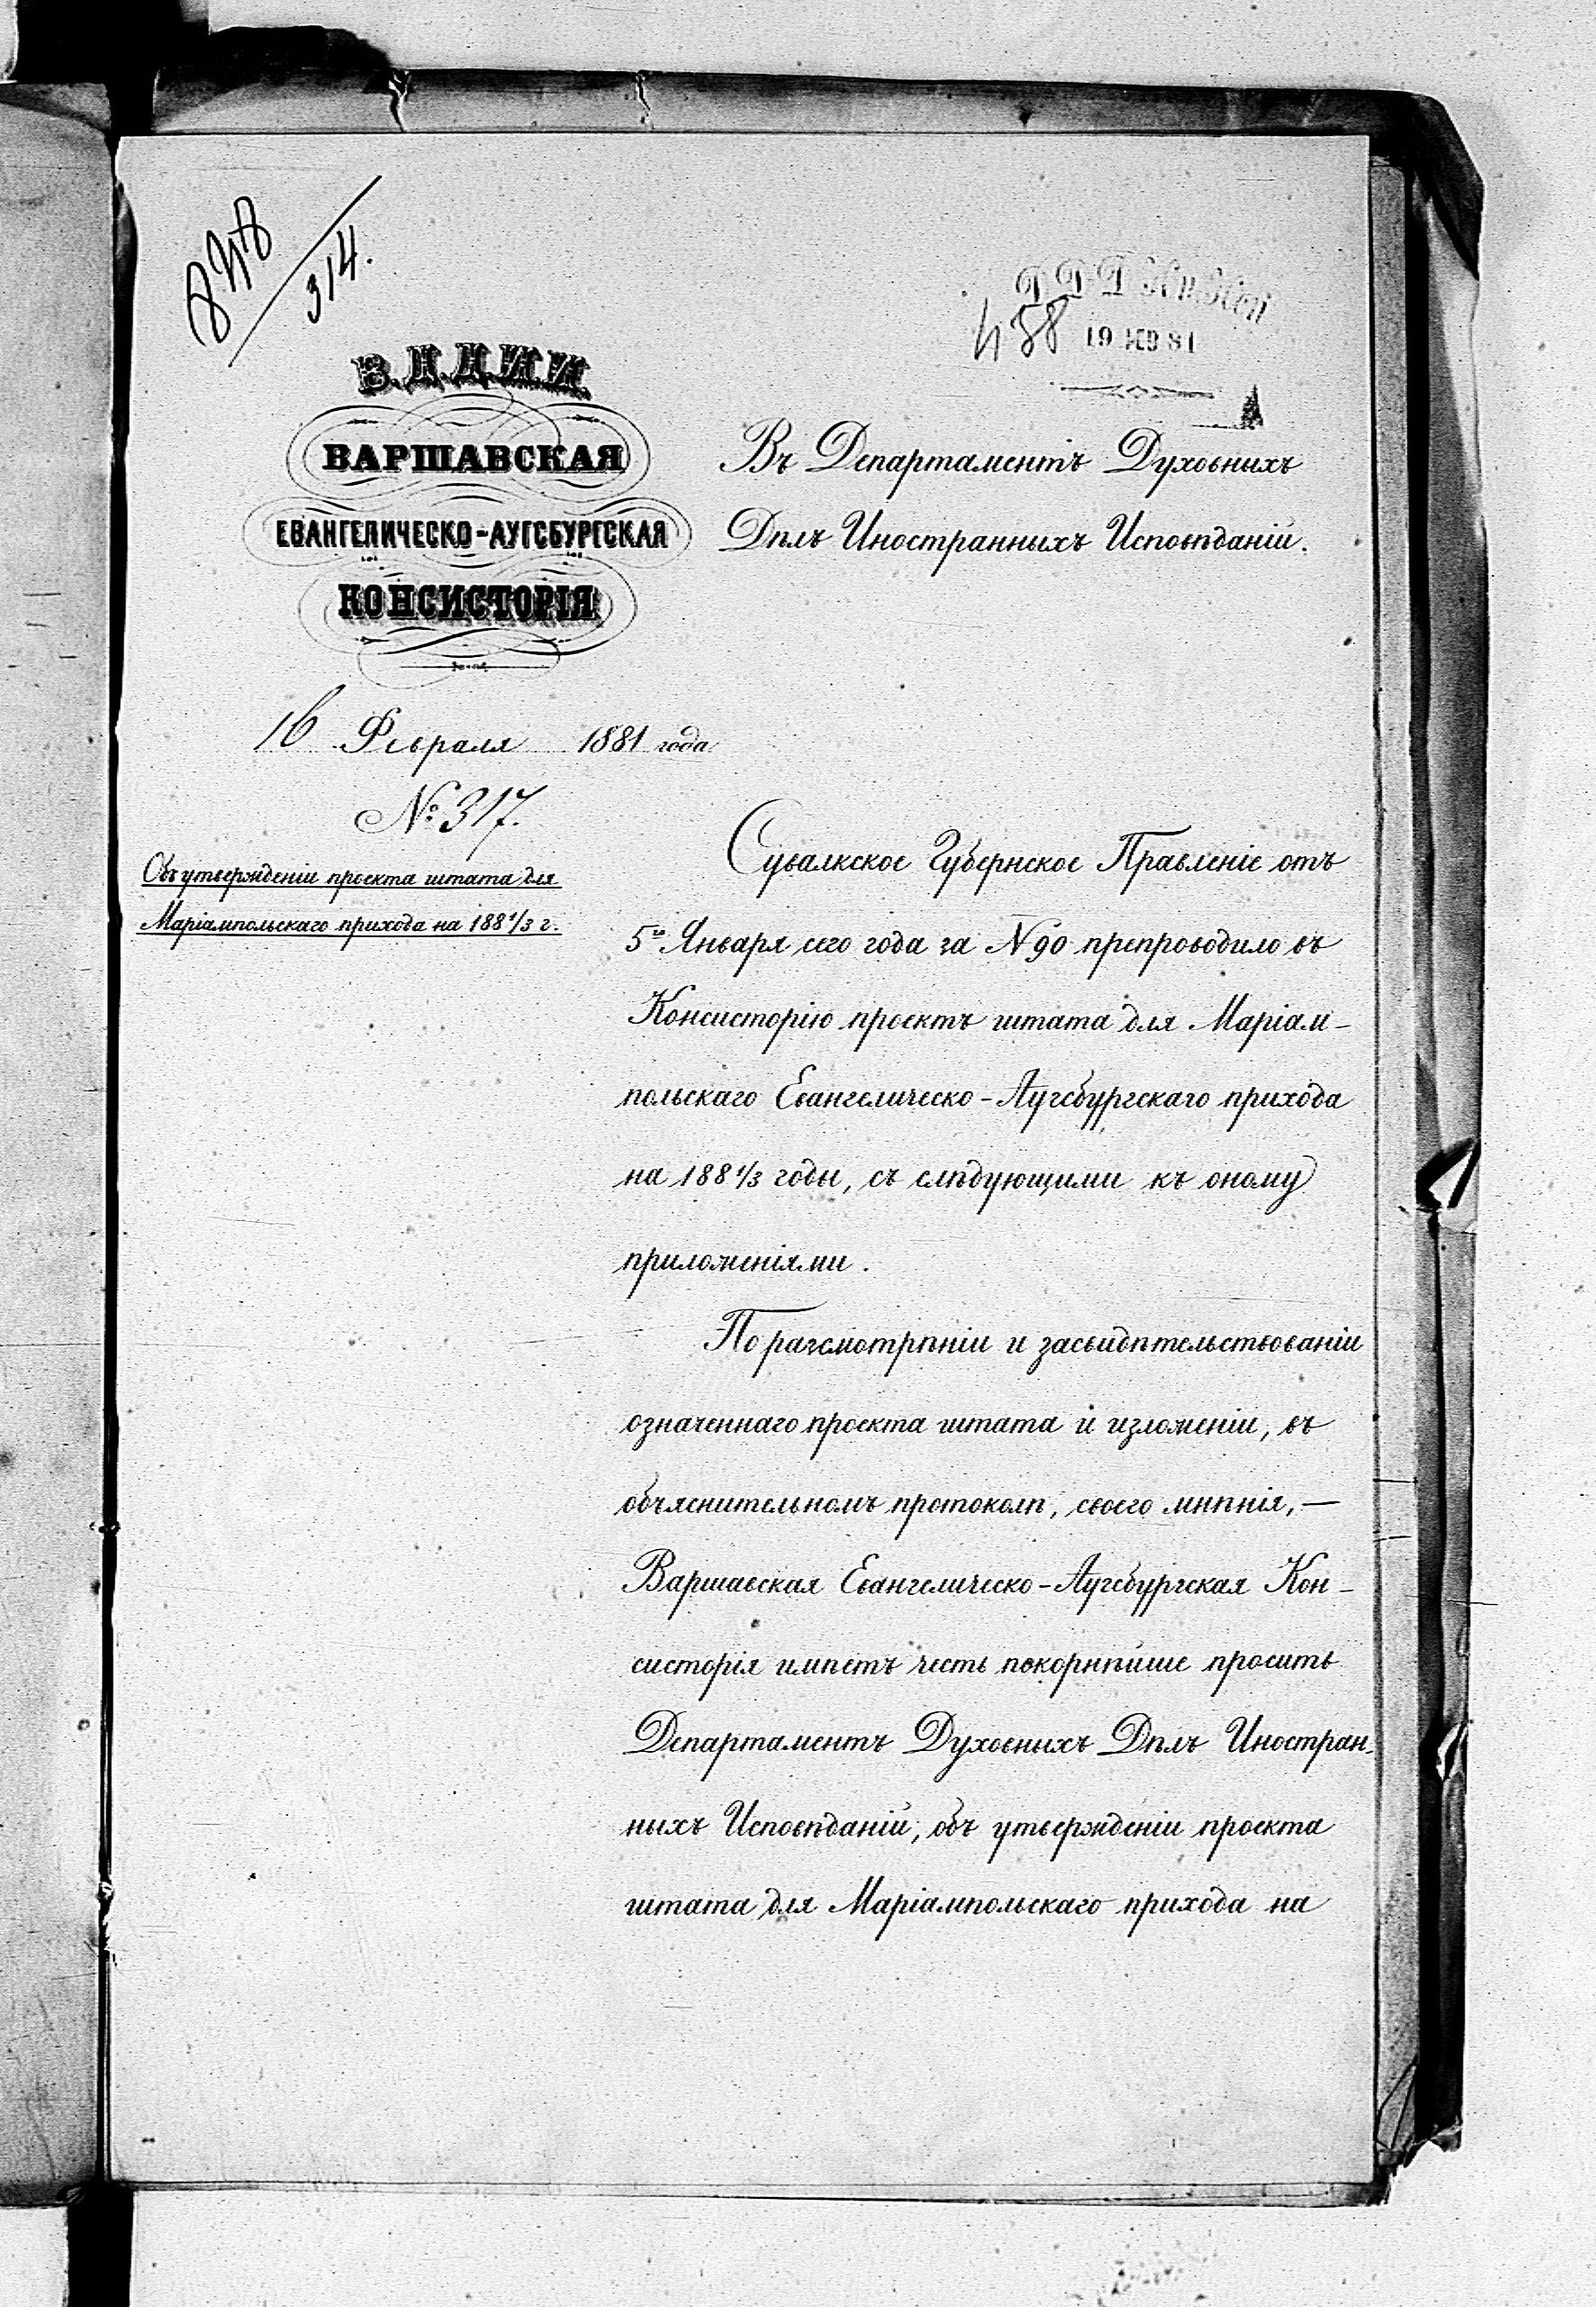 848/314.
19 ФЕВ 81
458
В. Д. Д. И. И.
ВАРШАВСКАЯ
ЕВАНГЕЛИЧЕСКО-АУГСБУРГСКАЯ
КОНСИСТОРІЯ
16 Февраля 1881 года
№ 317.
Объ утвержденіи проекта штата для
Маріампольскаго прихода на 1881/3 г.
Въ Департаментъ Духовныхъ
Дѣлъ Иностранныхъ Исповѣданій.
Сувалкское Губернское Правленіе отъ
5го Января сего года за N 90 препроводило въ
Консисторію проектъ штата для Маріам-
польскаго Евангелическо-Аугсбургскаго прихода
на 1881/3 годы, съ слѣдующими къ оному
приложеніями.
По разсмотрѣніи и засвидѣтельствованіи
означеннаго проекта штата и изложеніи, въ
объяснительномъ протоколѣ, своего мнѣнія, —
Варшавская Евангелическо-Аугсбургская Кон-
систорія имѣетъ честь покорнѣйше просить
Департаментъ Духовныхъ Дѣлъ Иностран-
ныхъ Исповѣданій, объ утвержденіи проекта
штата для Маріампольскаго прихода на